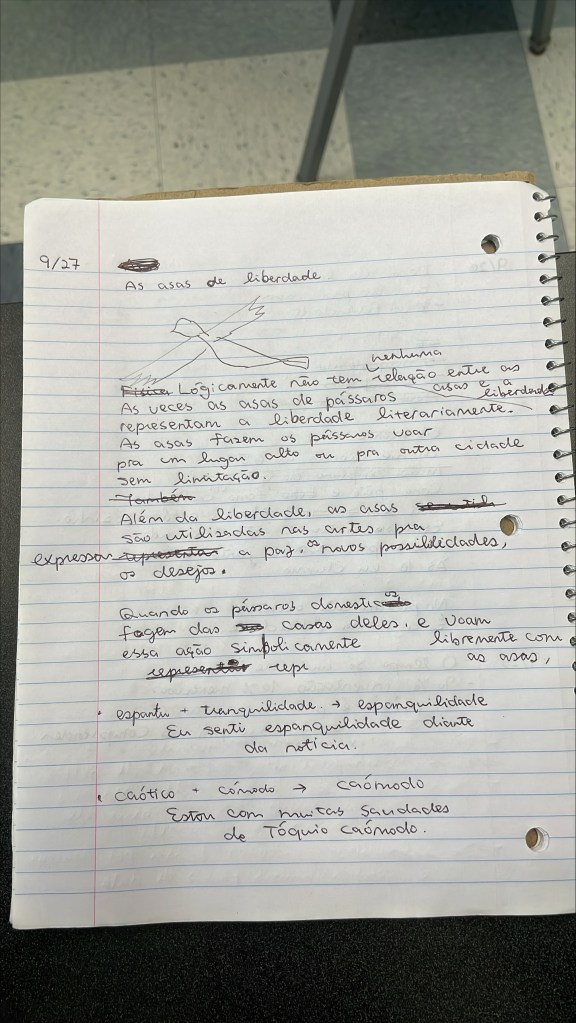 9/27
As asas de liberdade
nenhuma
Lógicamente não tem relação entre as
asas e a
liberdade
As veces as asas de pássaros
representam a liberdade literariamente.
As asas fazem os pássaros voar
pra um lugar alto ou pra outra cidade
sem limitação.
Também
Além da liberdade, as asas
são utilizadas nas artes pra
expressar representar a paz, as novas possiblidades,
os desejos.
Quando os pássaros domesticos
fogem das casas deles, e voam
essa ação simbolicamente libremente com
representar repr as asas,
• espanto + tranquilidade → espanquilidade
Eu senti espanquilidade diante
da noticia.
• caótico + cómodo → caómodo
Estou com muitas saudades
de Tóquio caómodo.